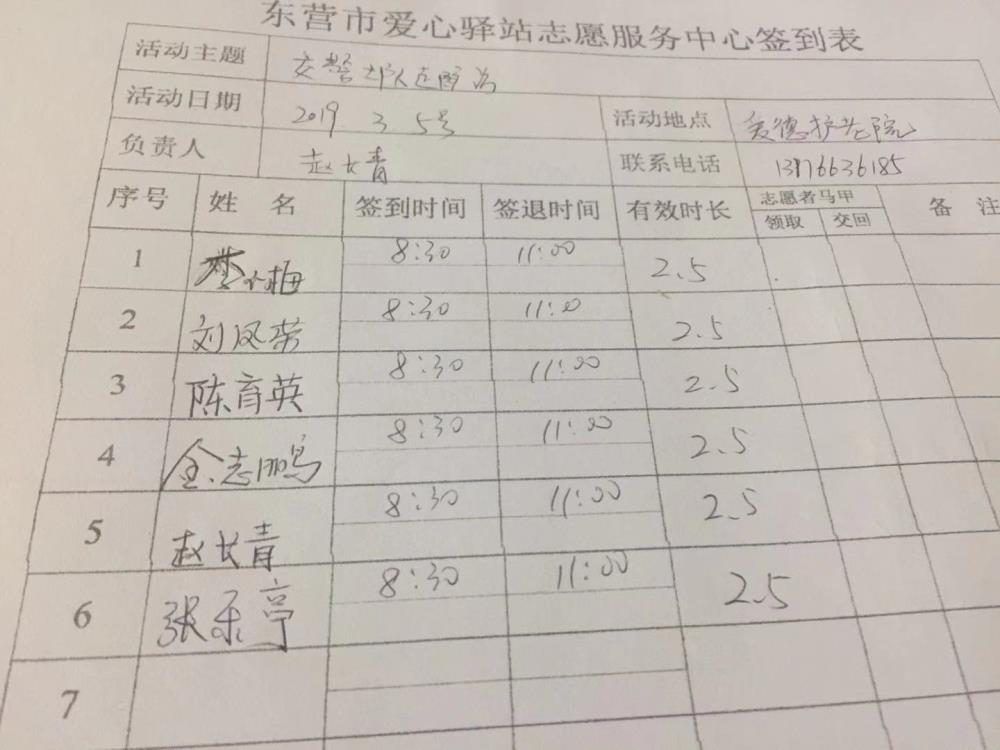 东营市爱心驿站志愿服务中心签到表
活动主题 交警
活动日期 2019 3 5号 活动地点 爱德护老院
负责人 赵长青 联系电话 13976636185
序号 姓 名 签到时间 签退时间 有效时长 志愿者马甲 备 注
领取 交回
1 梅 8:30 11:00 2.5
2 刘凤荣 8:30 11:0 2.5
3 陈育英 8:30 11:00 2.5
4 金志鹏 8:30 11:00 2.5
5 赵长青 8:30 11:00 2.5
6 张乐亭 8:30 11:00 2.5
7